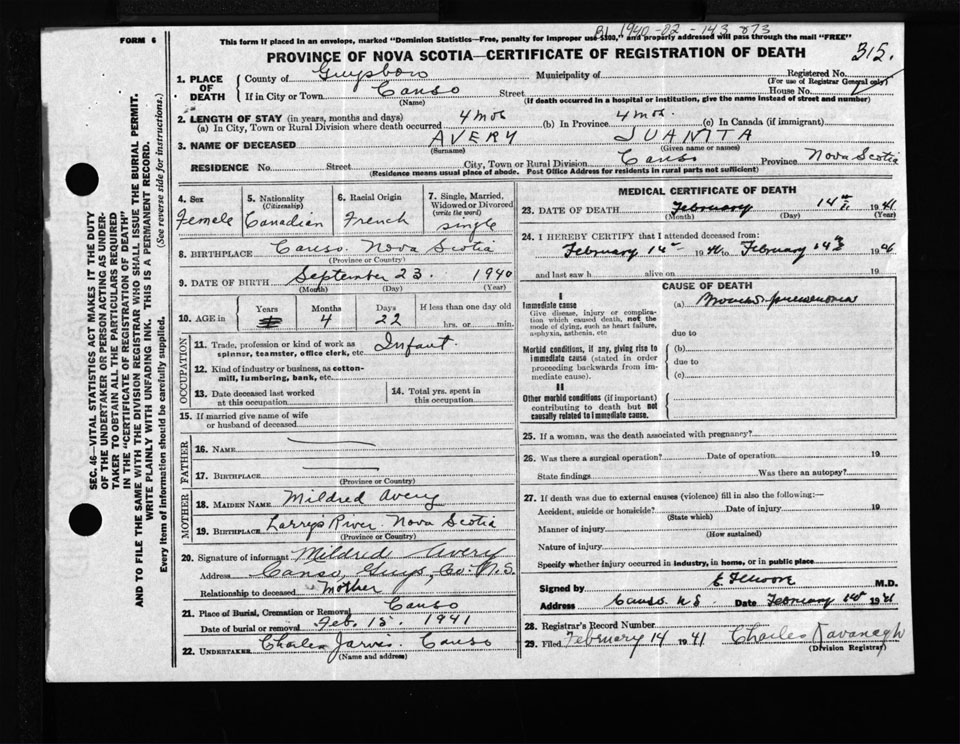 B1 1940-02-143 873
FORM 6
This form if placed in an envelope, marked "Dominion Statistics—Free, penalty for improper use $300," and properly addressed will pass through the mail "FREE"
PROVINCE OF NOVA SCOTIA—CERTIFICATE OF REGISTRATION OF DEATH
315.
1. PLACE OF DEATH
County of Guysboro Municipality of Registered No.
(For use of Registrar General only)
If in City or Town Canso Street House No.
(Name) (If death occurred in a hospital or institution, give the name instead of street and number)
2. LENGTH OF STAY (in years, months and days)
(a) In City, Town or Rural Division where death occurred 4 mos (b) In Province 4 mos. (c) In Canada (if immigrant)
3. NAME OF DECEASED AVERY JUANITA
(Surname) (Given name or names)
RESIDENCE No. Street City, Town or Rural Division Canso Province Nova Scotia
(Residence means usual place of abode. Post Office Address for residents in rural parts not sufficient)
4. Sex Female
5. Nationality (Citizenship) Canadian
6. Racial Origin French
7. Single, Married, Widowed or Divorced (write the word) single
8. BIRTHPLACE Canso. Nova Scotia
(Province or Country)
9. DATE OF BIRTH September 23. 1940
(Month) (Day) (Year)
10. AGE in Years Months 4 Days 22 If less than one day old hrs. or min.
OCCUPATION
11. Trade, profession or kind of work as spinner, teamster, office clerk, etc Infant.
12. Kind of industry or business, as cotton-mill, lumbering, bank, etc.
13. Date deceased last worked at this occupation
14. Total yrs. spent in this occupation
15. If married give name of wife or husband of deceased
FATHER
16. NAME
17. BIRTHPLACE
(Province or Country)
MOTHER
18. MAIDEN NAME Mildred Avery
19. BIRTHPLACE Larry's River Nova Scotia
(Province or Country)
20. Signature of informant Mildred Avery
Address Canso, Guys, Co. N.S.
Relationship to deceased Mother
21. Place of Burial, Cremation or Removal Canso
Date of burial or removal Feb. 15. 1941
22. UNDERTAKER Charles Jarvis Canso
(Name and address)
MEDICAL CERTIFICATE OF DEATH
23. DATE OF DEATH February 14th 1941
(Month) (Day) (Year)
24. I HEREBY CERTIFY that I attended deceased from:
February 14 19 to February 14th 19
and last saw h alive on 19
CAUSE OF DEATH
I
Immediate cause
Give disease, injury or complication which caused death, not the mode of dying, such as heart failure, asphyxia, asthenia, etc
(a) pneumonia
due to
Morbid conditions, if any, giving rise to immediate cause (stated in order proceeding backwards from immediate cause).
(b)
due to
(c)
II
Other morbid conditions (if important) contributing to death but not causally related to immediate cause.
25. If a woman, was the death associated with pregnancy?
26. Was there a surgical operation? Date of operation 19
State findings Was there an autopsy?
27. If death was due to external causes (violence) fill in also the following:—
Accident, suicide or homicide? Date of injury 19
(State which)
Manner of injury
(How sustained)
Nature of injury
Specify whether injury occurred in industry, in home, or in public place
Signed by M.D.
Address Canso N S Date February 14 1941
28. Registrar's Record Number
29. Filed February 14 1941 Charles Kavanagh
(Division Registrar)
SEC. 46—VITAL STATISTICS ACT MAKES IT THE DUTY
OF THE UNDERTAKER OR PERSON ACTING AS UNDER-
TAKER TO OBTAIN ALL THE PARTICULARS REQUIRED
IN THE "CERTIFICATE OF REGISTRATION OF DEATH"
AND TO FILE THE SAME WITH THE DIVISION REGISTRAR WHO SHALL ISSUE THE BURIAL PERMIT.
WRITE PLAINLY WITH UNFADING INK. THIS IS A PERMANENT RECORD.
Every item of information should be carefully supplied. (See reverse side for instructions.)